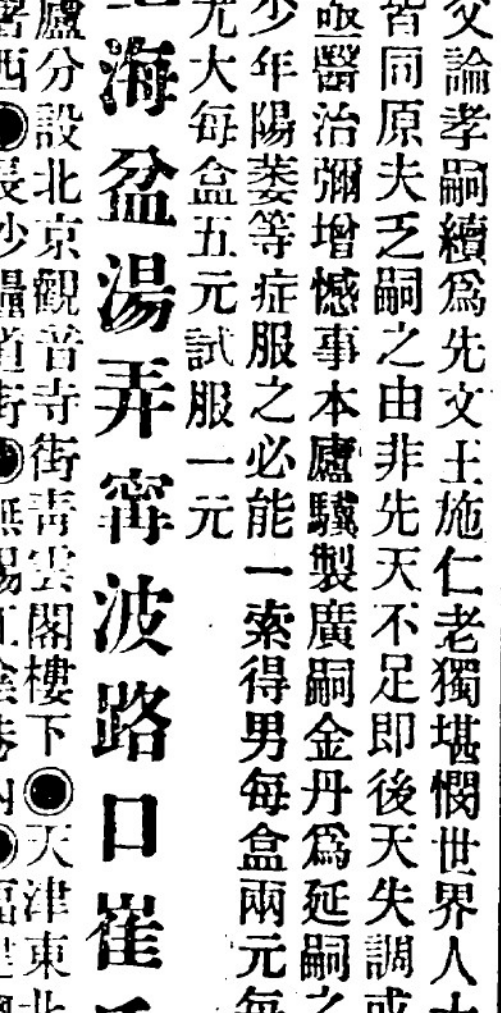 文論孝嗣續爲先文王施仁老獨堪憫世界人
皆同原夫乏嗣之由非先天不足即後天失調或
亟醫治彌增憾事本廬驥製廣嗣金丹爲延嗣之
少年陽萎等症服之必能一索得男每盒兩元每
尤大每盒五元試服一元
海盆湯弄甯波路口崔氏
廬分設北京觀音寺街靑雲閣樓下◉天津東北
西◉長沙糧道街◉無錫江陰巷◉福建